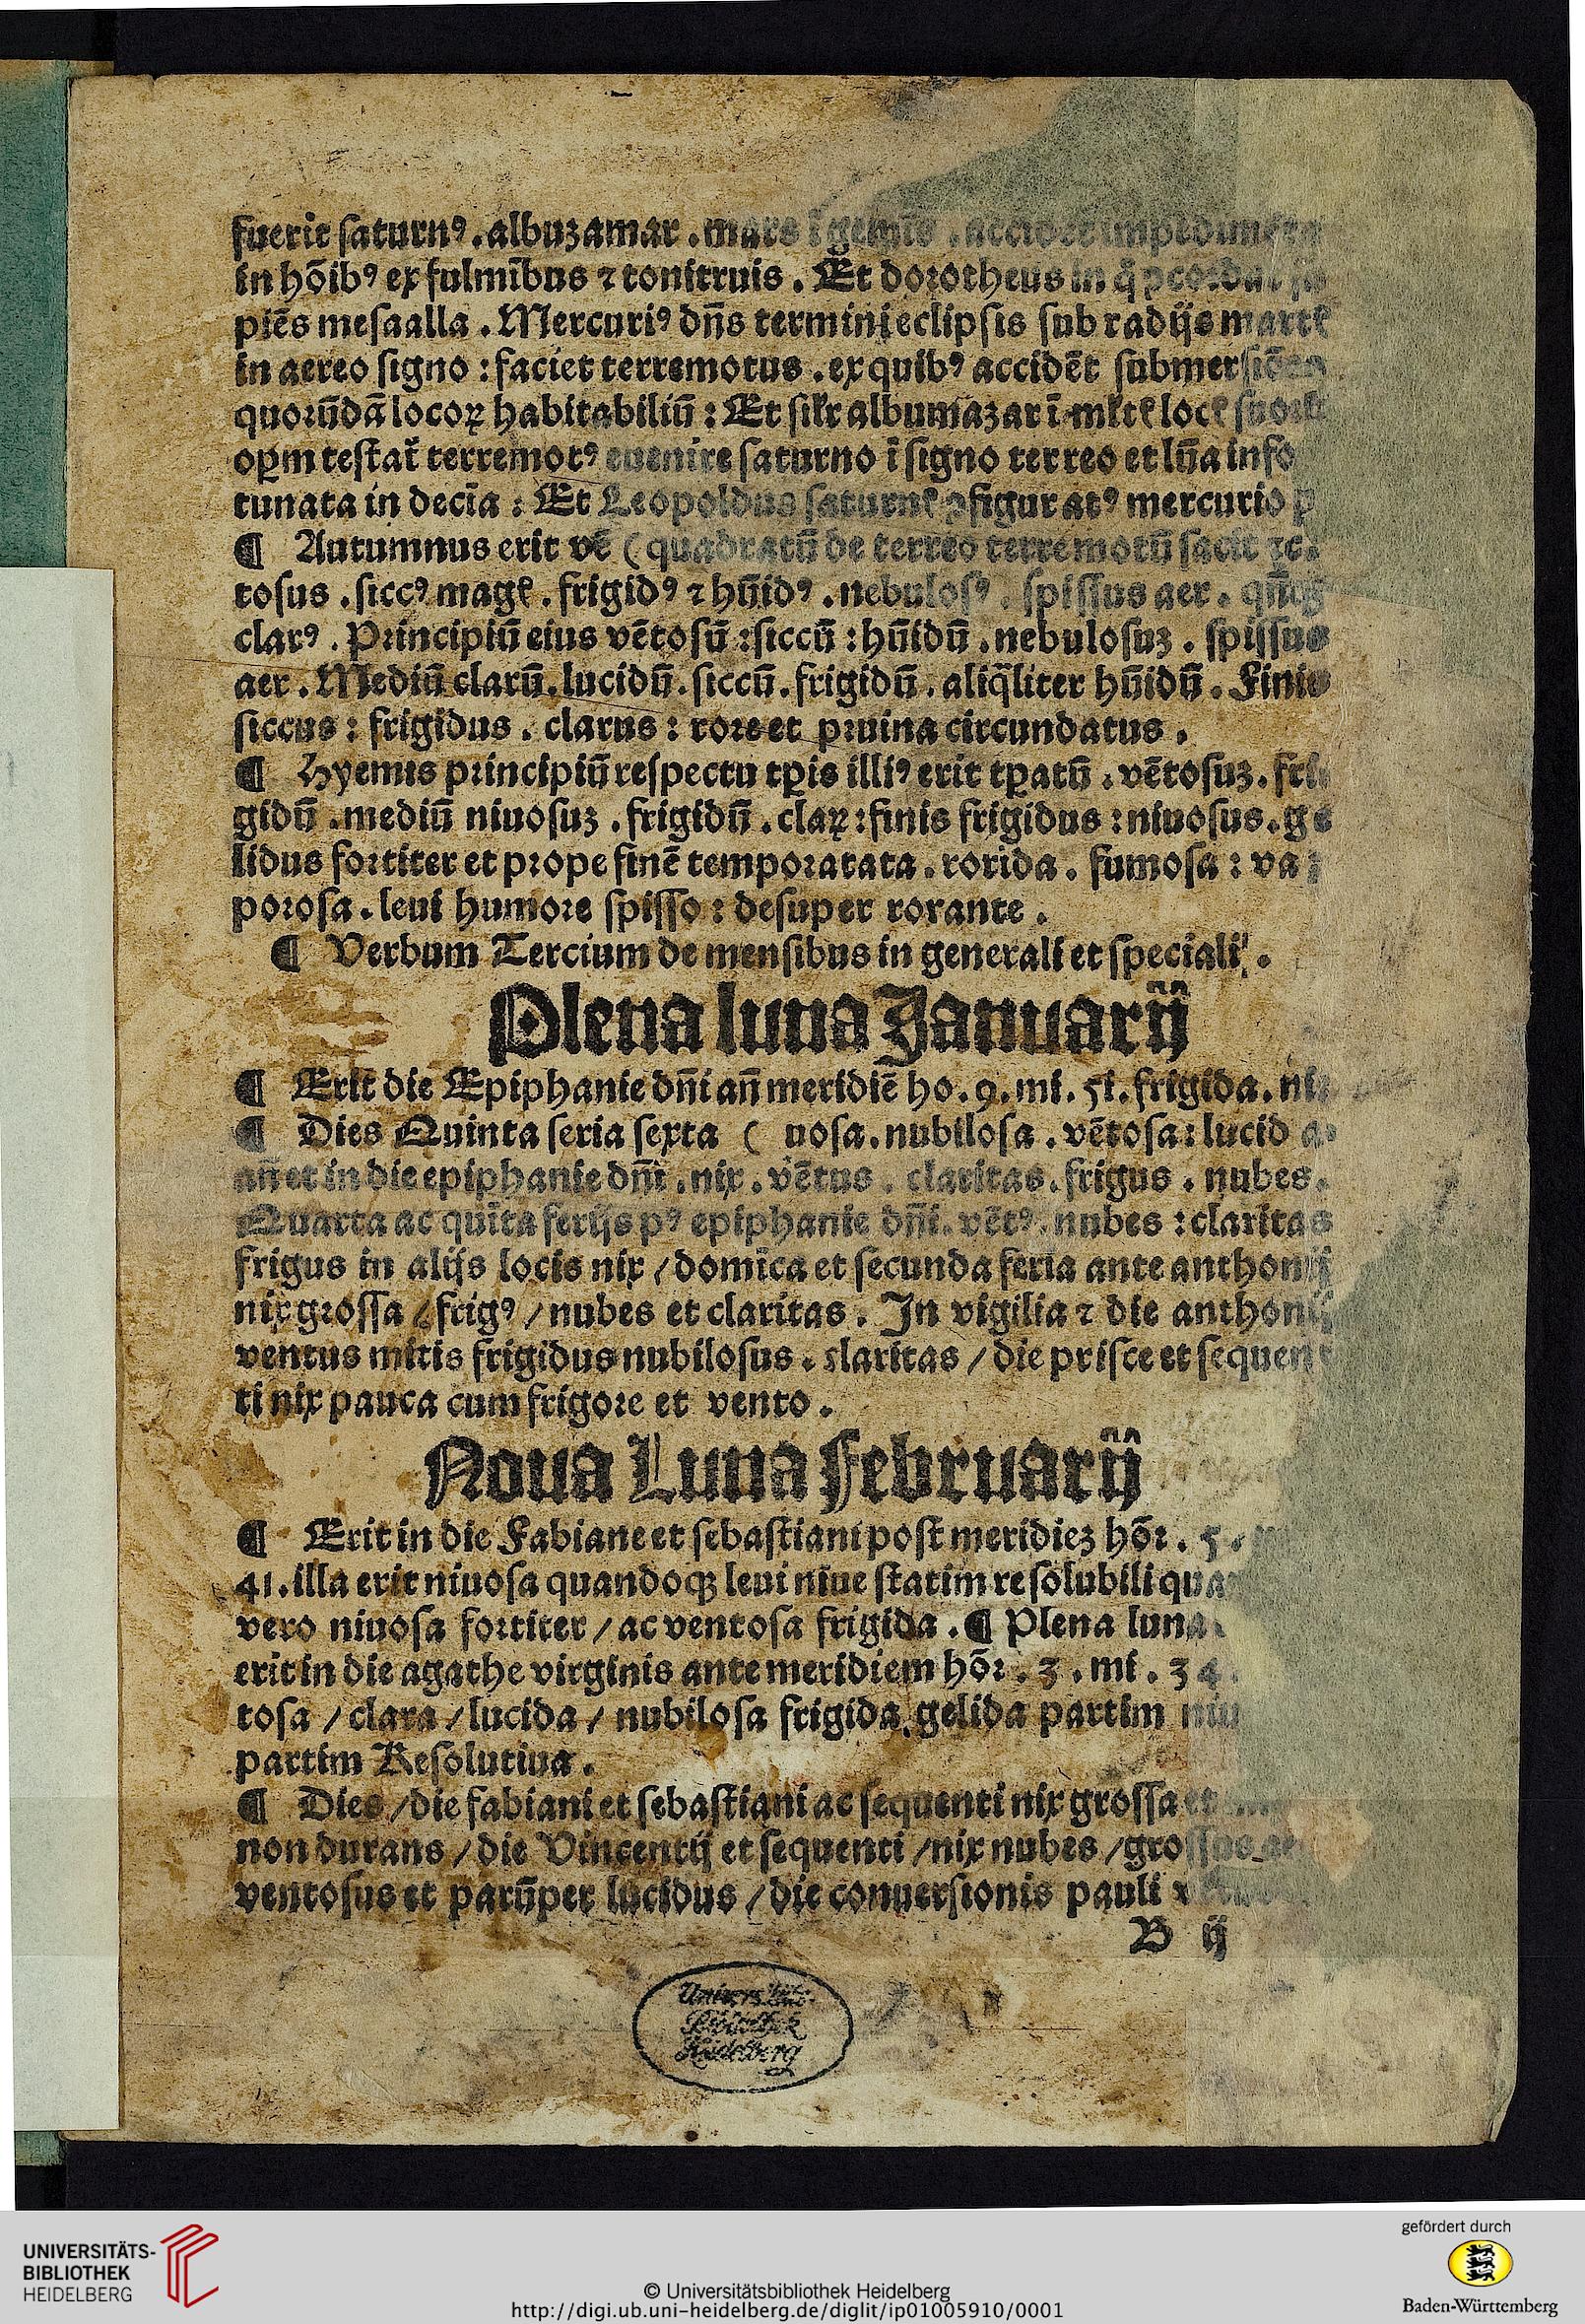 fuerit saturnꝰ . albuzamar . mars ī gemīs . accidēt
in hōibꝰ ex fulmībus ⁊ tonitruis . Et dorotheus in
piēs mesaalla . Mercuriꝰ dn̄s termini eclipsis sub radijs
in aereo signo : faciet terremotus . ex quibꝰ accidēt
quorūdā locoꝝ habitabiliū : Et silr albumazar ī
terremotꝰ euenire saturno ī signo terreo et lūa
tunata in decīa : Et Leopoldus mercurio
¶ Autumnus erit vē ( quadratū de terreo terremotū facit ⁊c.
tosus . siccꝰ . frigidꝰ ⁊ hūidꝰ . nebulosꝰ . spissus aer .
clarꝰ . Principiū eius vētosū : siccū : hūidū . nebulosuz . spissus
aer . Mediū clarū . lucidū . siccū . frigidū . aliq̄liter hūidū . Finis
siccus : frigidus . clarus : rore et pruina circundatus .
¶ Hyemis principiū respectu tꝑis illiꝰ erit tꝑatū . vētosuz . fri
gidū . mediū niuosuz . frigidū . claꝝ : finis frigidus : niuosus . ge
lidus fortiter et prope finē temporatata . rorida . fumosa : va
porosa . leui humore spisso : desuper rorante .
¶ Verbum Tercium de mensibus in generali et speciali .
Plena luna Januarij
¶ Erit die Epiphanie dn̄i an̄ meridiē ho . 9 . mi . 51 . frigida . ni
¶ Dies Quinta feria sexta ( uosa . nubilosa . vētosa : lucida
an̄ et in die epiphanie dn̄i . nix . vētus . claritas . frigus . nubes .
Quarta ac quīta ferijs pꝰ epiphanie dn̄i . vētꝰ . nubes : claritas
frigus in alijs locis nix / domīca et secunda feria ante anthonij
nix grossa / frigꝰ / nubes et claritas . In vigilia ⁊ die anthonij
ventus mitis frigidus nubilosus . claritas / die prisce et sequen
ti nix pauca cum frigore et vento .
Noua Luna Februarij
¶ Erit in die Fabiane et sebastiani post meridiez hōr . 5 .
41 . illa erit niuosa quandoqꝫ leui niue statim resolubili
vero niuosa fortiter / ac ventosa frigida . ¶ Plena luna
erit in die agathe virginis ante meridiem hōr . 3 . mi . 34 .
tosa / clara / lucida / nubilosa frigida gelida partim
partim Resolutiua .
¶ Dies / die fabiani et sebastiani ac sequenti nix grossa
non durans / die Vincentij et sequenti / nix nubes /
ventosus et parūper lucidus / die conuersionis pauli
B ij
Universitäts-
Bibliothek
Heidelberg
UNIVERSITÄTS-
BIBLIOTHEK
HEIDELBERG
© Universitätsbibliothek Heidelberg
http://digi.ub.uni-heidelberg.de/diglit/ip01005910/0001
gefördert durch
Baden-Württemberg